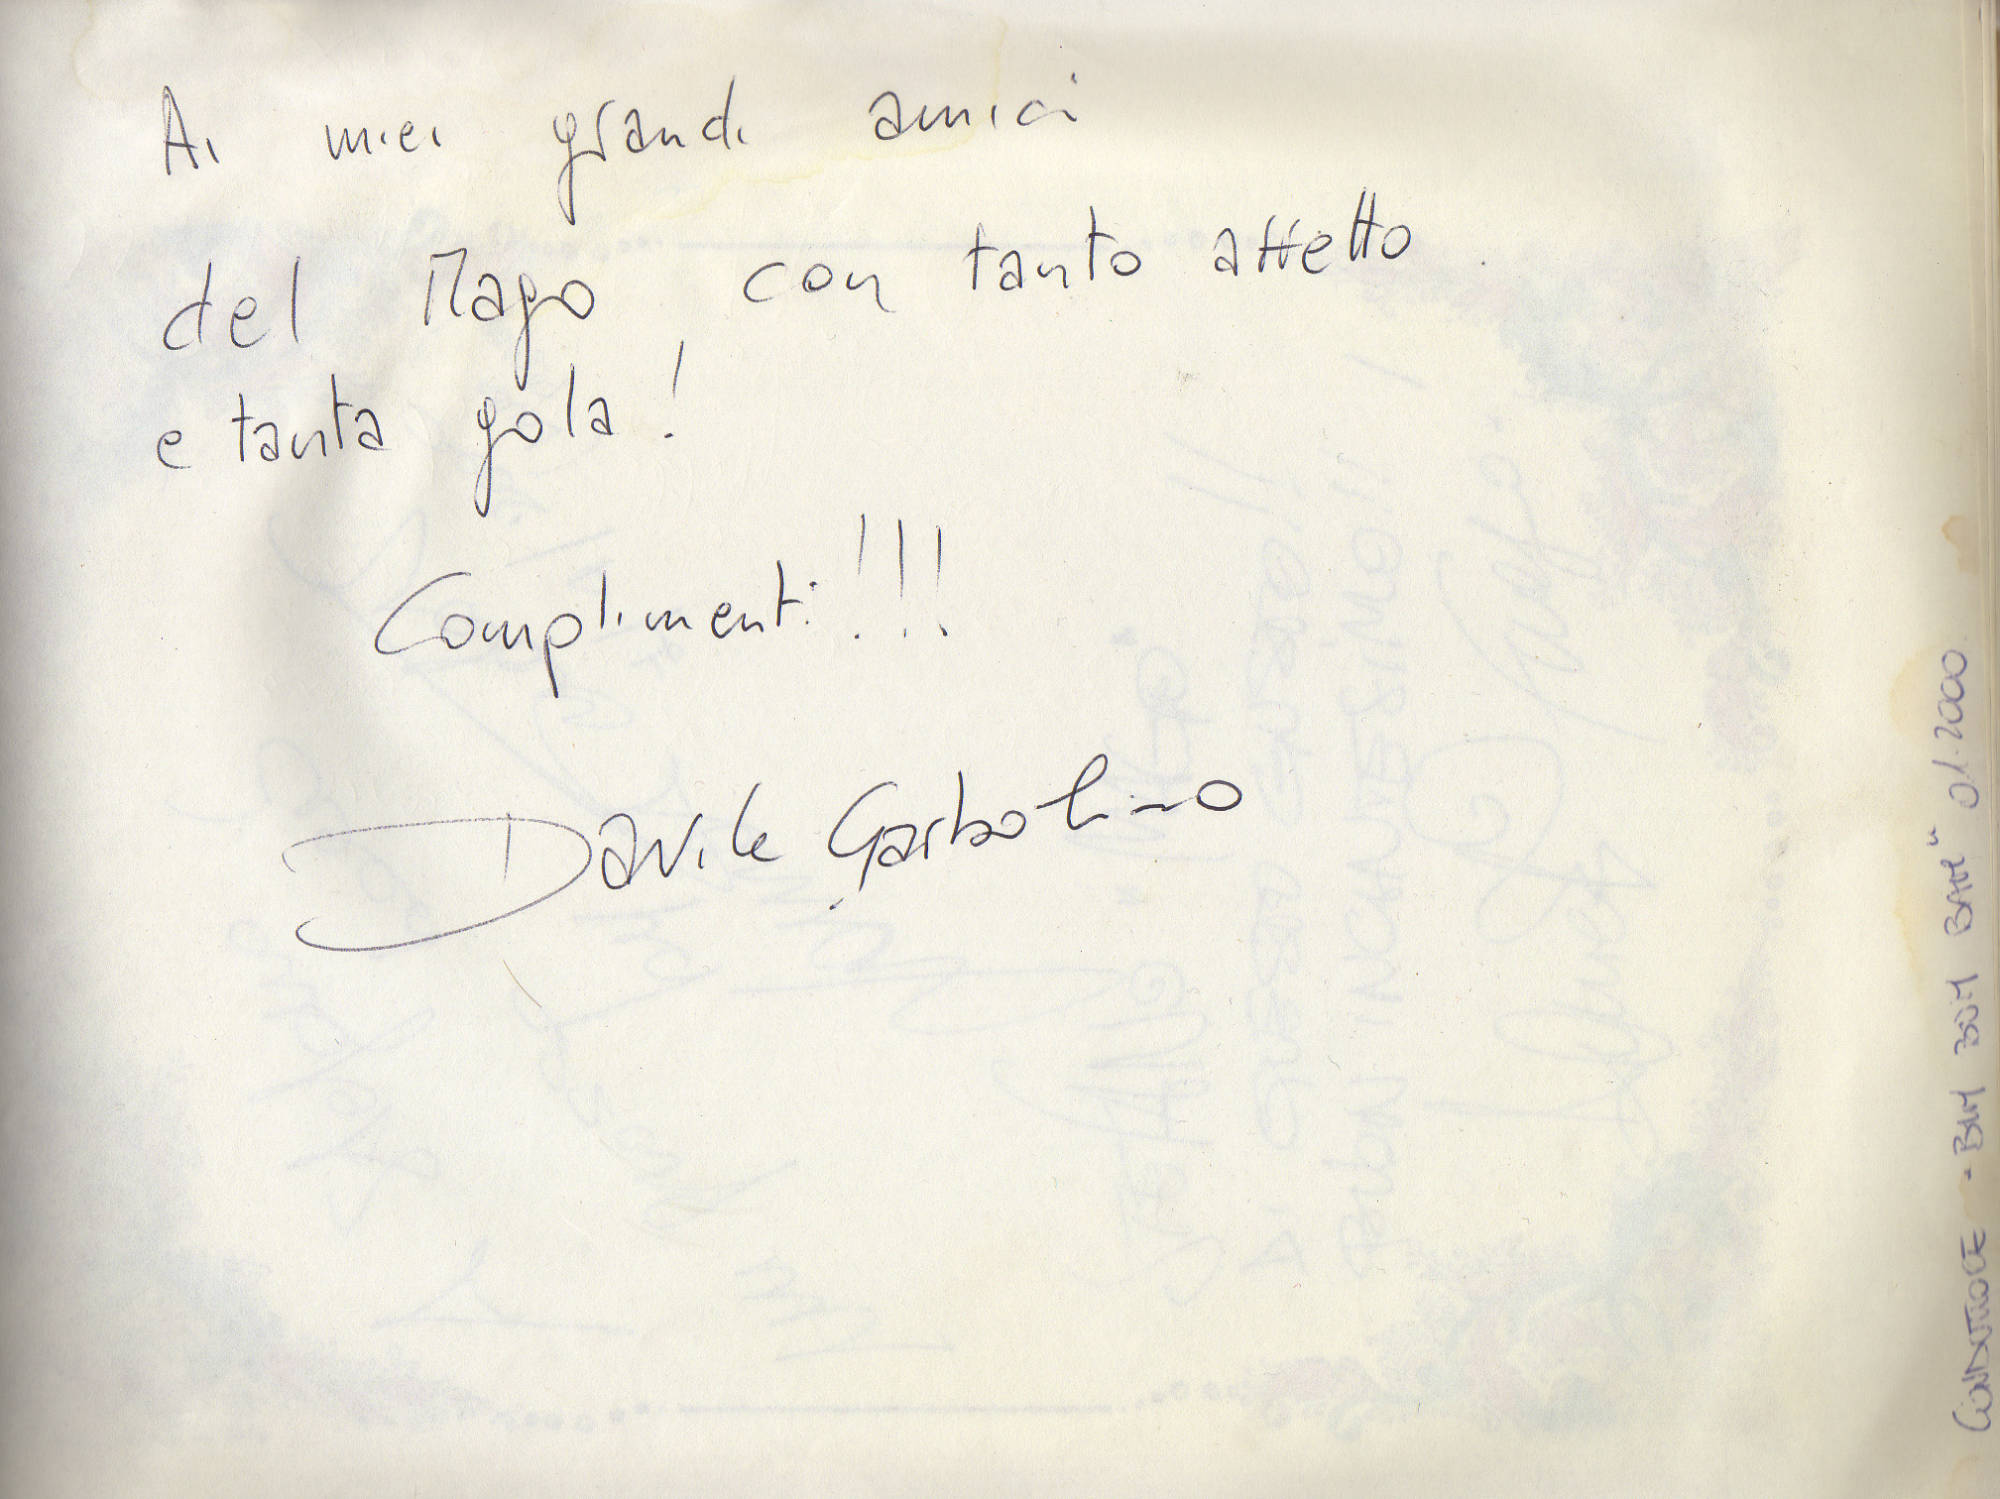 Ai miei grandi amici
del Mago con tanto affetto
e tanta gola!
Complimenti!!!
Davide Garbolino
CONDUTTORE "BIM BUM BAM" 01.2000